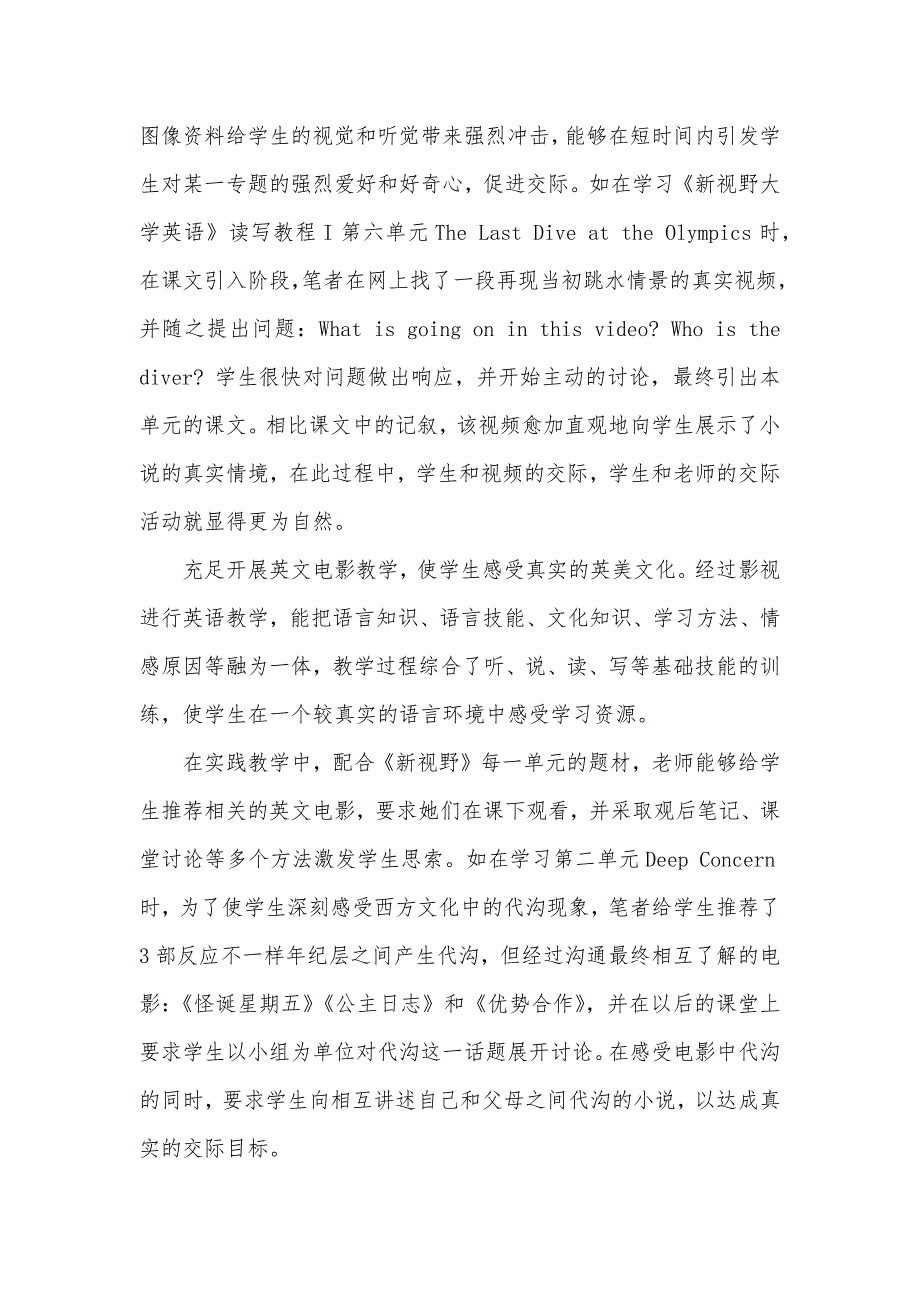 图像资料给学生的视觉和听觉带来强烈冲击，能够在短时间内引发学
生对某一专题的强烈爱好和好奇心，促进交际。如在学习《新视野大
学英语》读写教程 I 第六单元 The Last Dive at the Olympics 时，
在课文引入阶段，笔者在网上找了一段再现当初跳水情景的真实视频，
并随之提出问题：What is going on in this video? Who is the
diver? 学生很快对问题做出响应，并开始主动的讨论，最终引出本
单元的课文。相比课文中的记叙，该视频愈加直观地向学生展示了小
说的真实情境，在此过程中，学生和视频的交际，学生和老师的交际
活动就显得更为自然。
充足开展英文电影教学，使学生感受真实的英美文化。经过影视
进行英语教学，能把语言知识、语言技能、文化知识、学习方法、情
感原因等融为一体，教学过程综合了听、说、读、写等基础技能的训
练，使学生在一个较真实的语言环境中感受学习资源。
在实践教学中，配合《新视野》每一单元的题材，老师能够给学
生推荐相关的英文电影，要求她们在课下观看，并采取观后笔记、课
堂讨论等多个方法激发学生思索。如在学习第二单元 Deep Concern
时，为了使学生深刻感受西方文化中的代沟现象，笔者给学生推荐了
3 部反应不一样年纪层之间产生代沟，但经过沟通最终相互了解的电
影：《怪诞星期五》《公主日志》和《优势合作》，并在以后的课堂上
要求学生以小组为单位对代沟这一话题展开讨论。在感受电影中代沟
的同时，要求学生向相互讲述自己和父母之间代沟的小说，以达成真
实的交际目标。